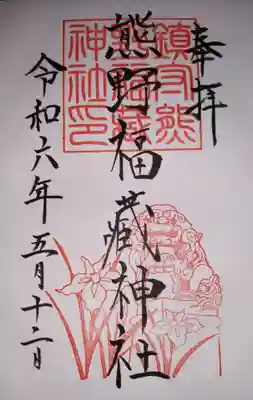 奉拝
鎮守熊
神社印
熊野福蔵神社
令和六年五月十二日